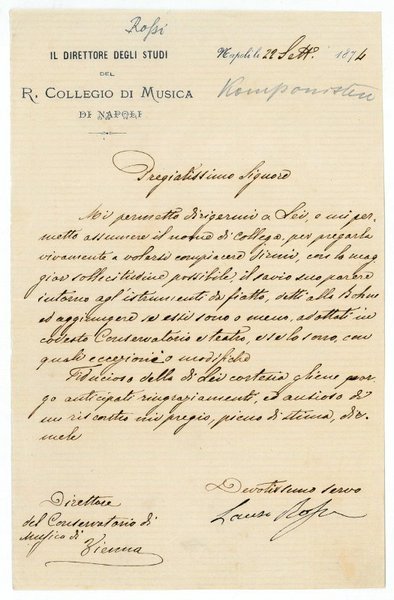 Rossi
IL DIRETTORE DEGLI STUDI
DEL
R. COLLEGIO DI MUSICA
DI NAPOLI
Napoli li 22 Sett. 1874
Komponisten
Pregiatissimo Signore
Mi permetto dirigermi a Lei, e mi per-
metto assumere il nome di Collega, per pregarla
vivamente a volersi compiacere dirmi, con la mag
gior sollecitudine possibile, il savio suo parere
intorno agl'istrumenti da fiato, detti alla Böhm
ed aggiungere se essi sono o meno, adottati in
codesto Conservatorio e teatro, e se lo sono, con
quale eccezioni o modifiche
Fiducioso della di Lei cortesia gliene por-
go anticipati ringraziamenti, ed ansioso di
un riscontro mi pregio, pieno di stima, dir-
mele
Devotissimo servo
Lauro Rossi
Direttore
del Conservatorio di
Musica di
Vienna